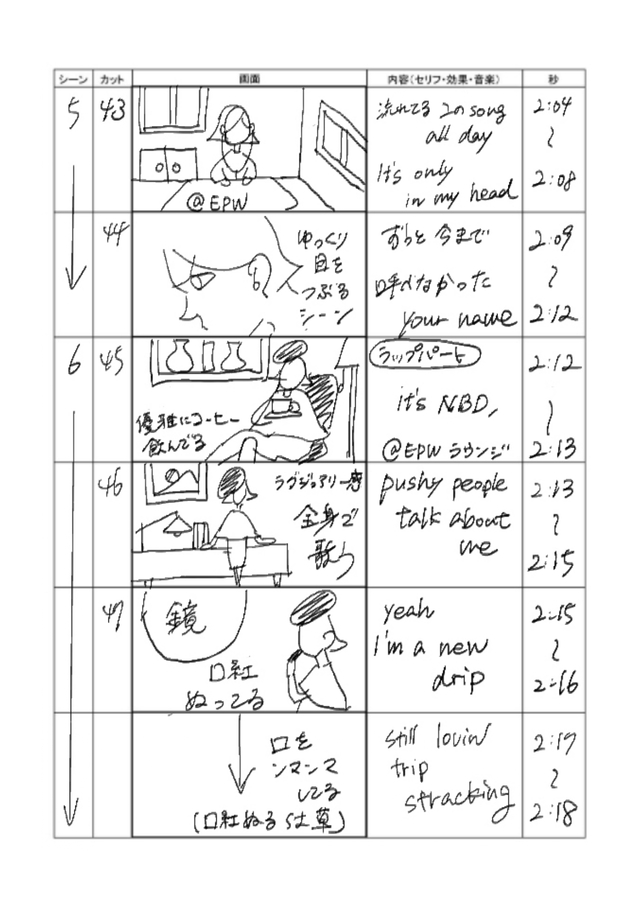 シーン カット 画面 内容(セリフ・効果・音楽) 秒
5 43
@EPW
流れてる この song
all day
It's only
in my head
2:04
〜
2:08
44
ゆっくり
目を
つぶる
シーン
ずっと 今まで
呼べなかった
your name
2:09
〜
2:12
6 45
優雅にコーヒー
飲んでる
ラップパート
it's NBD,
@EPW ラウンジ
2:12
〜
2:13
46
ラグジュアリー感
全身で
歌う
pushy people
talk about
me
2:13
〜
2:15
47
鏡
口紅
ぬってる
yeah
I'm a new
drip
2:15
〜
2:16
口を
ンマンマ
してる
(口紅ぬる仕草)
still lovin'
trip
stracking
2:17
〜
2:18